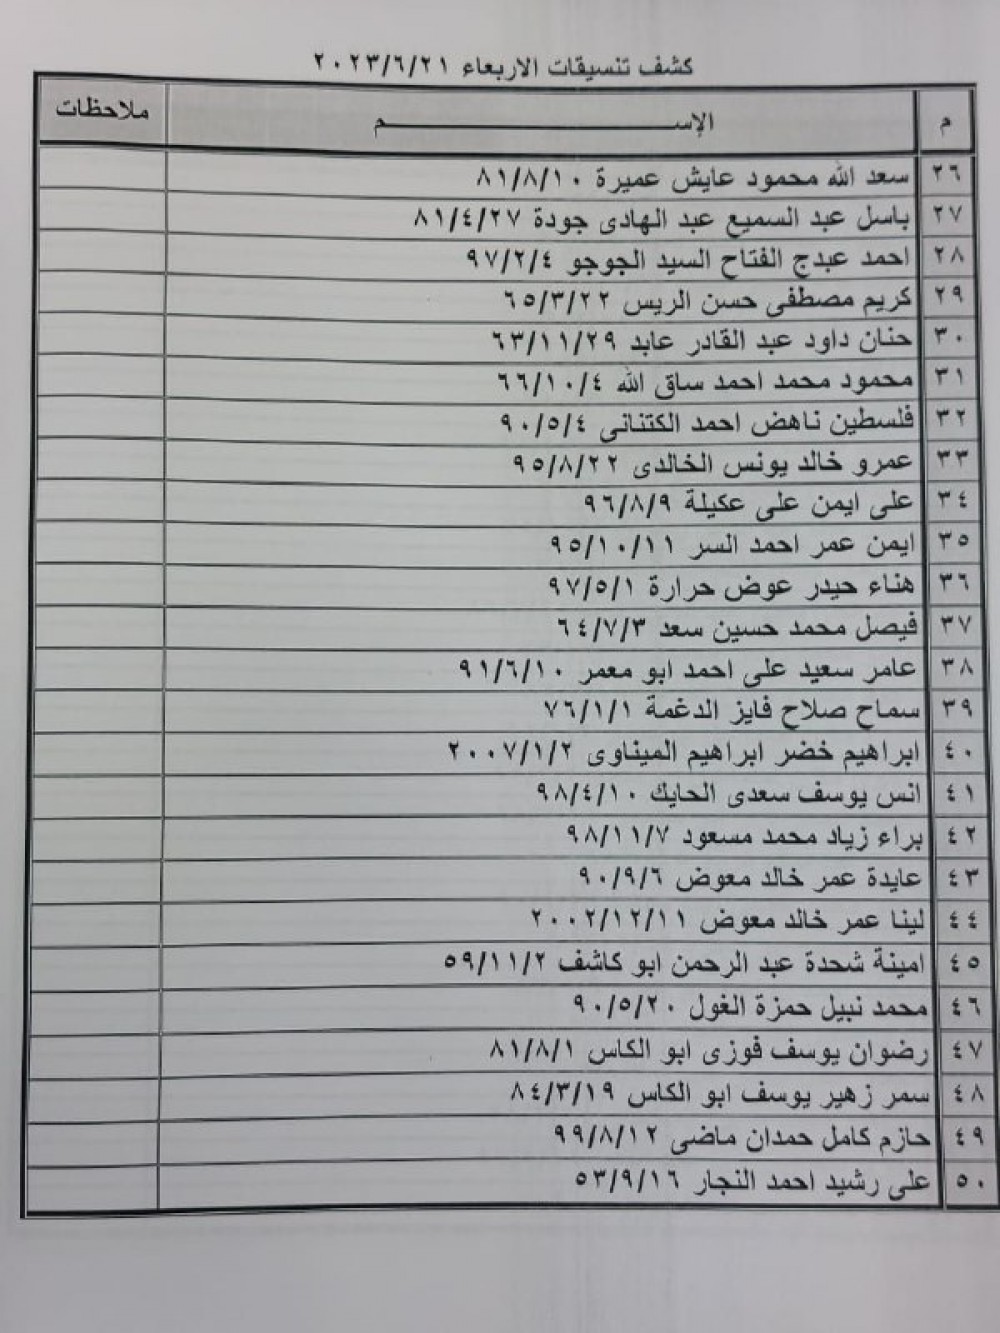 كشف تنسيقات الاربعاء ٢٠٢٣/٦/٢١
م الإســــــــم ملاحظات
٢٦ سعد الله محمود عايش عميرة ٨١/٨/١٠
٢٧ باسل عبد السميع عبد الهادى جودة ٨١/٤/٢٧
٢٨ احمد عبدج الفتاح السيد الجوجو ٩٧/٢/٤
٢٩ كريم مصطفى حسن الريس ٦٥/٣/٢٢
٣٠ حنان داود عبد القادر عابد ٦٣/١١/٢٩
٣١ محمود محمد احمد ساق الله ٦٦/١٠/٤
٣٢ فلسطين ناهض احمد الكتنانى ٩٠/٥/٤
٣٣ عمرو خالد يونس الخالدى ٩٥/٨/٢٢
٣٤ على ايمن على عكيلة ٩٦/٨/٩
٣٥ ايمن عمر احمد السر ٩٥/١٠/١١
٣٦ هناء حيدر عوض حرارة ٩٧/٥/١
٣٧ فيصل محمد حسين سعد ٦٤/٧/٣
٣٨ عامر سعيد على احمد ابو معمر ٩١/٦/١٠
٣٩ سماح صلاح فايز الدغمة ٧٦/١/١
٤٠ ابراهيم خضر ابراهيم الميناوى ٢٠٠٧/١/٢
٤١ انس يوسف سعدى الحايك ٩٨/٤/١٠
٤٢ براء زياد محمد مسعود ٩٨/١١/٧
٤٣ عايدة عمر خالد معوض ٩٠/٩/٦
٤٤ لينا عمر خالد معوض ٢٠٠٢/١٢/١١
٤٥ امينة شحدة عبد الرحمن ابو كاشف ٥٩/١١/٢
٤٦ محمد نبيل حمزة الغول ٩٠/٥/٢٠
٤٧ رضوان يوسف فوزى ابو الكاس ٨١/٨/١
٤٨ سمر زهير يوسف ابو الكاس ٨٤/٣/١٩
٤٩ حازم كامل حمدان ماضى ٩٩/٨/١٢
٥٠ على رشيد احمد النجار ٥٣/٩/١٦